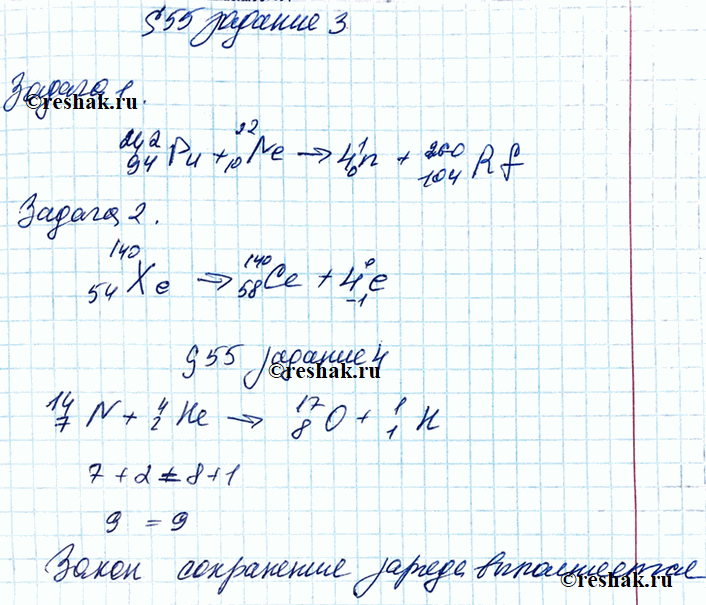 §55 задание 3
Задача 1.
©reshak.ru
²⁴²₉₄Pu + ²²₁₀Ne → 4¹₀n + ²⁶⁰₁₀₄Rf
Задача 2.
¹⁴⁰₅₄Xe → ¹⁴⁰₅₈Ce + 4⁰₋₁e
§55 задание 4
©reshak.ru
¹⁴₇N + ⁴₂He → ¹⁷₈O + ¹₁H
7 + 2 = 8 + 1
9 = 9
Закон сохранение заряда выполняется
©reshak.ru